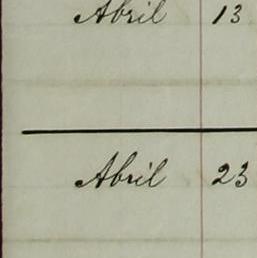 Abril 13
Abril 23